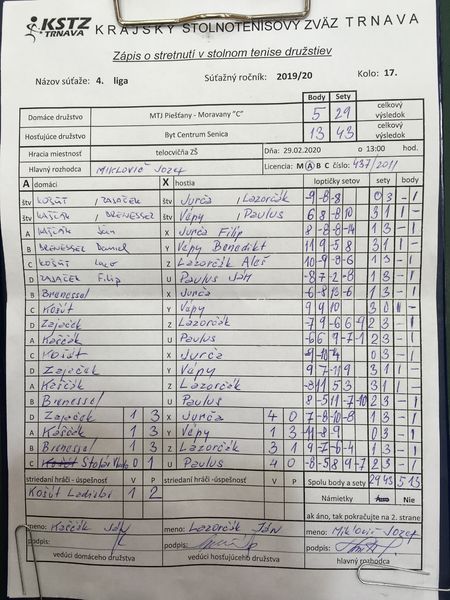 KSTZ TRNAVA KRAJSKÝ STOLNOTENISOVÝ ZVÄZ TRNAVA
Zápis o stretnutí v stolnom tenise družstiev
Názov súťaže: 4. liga Súťažný ročník: 2019/20 Kolo: 17.
Body Sety
Domáce družstvo MTJ Piešťany - Moravany "C" 5 29 celkový výsledok
Hosťujúce družstvo Byt Centrum Senica 13 43 celkový výsledok
Hracia miestnosť telocvičňa ZŠ Dňa: 29.02.2020 o 13:00 hod.
Hlavný rozhodca MIKLOVIČ Jozef Licencia: M A B C číslo: 437/2011
A domáci X hostia loptičky setov sety body
štv KOŠÚT / ZAJAČEK štv Jurča / Lazorčák -9 -8 -8 0 3 - 1
štv KAŠČÁK / BRENESSEL štv Vépy / Paulus 6 8 -8 10 3 1 1 -
A KAŠČÁK Ján X Jurča Filip 8 -8 -8 -14 1 3 - 1
B BRENESSEL Daniel Y Vépy Benedikt 11 9 -5 8 3 1 1 -
C KOŠÚT Z Lazorčák Aleš 10 -9 -9 -6 1 3 - 1
D ZAJAČEK Filip U Paulus Ján -8 7 -2 -8 1 3 - 1
B Brenessel X Jurča -6 -8 13 -6 1 3 - 1
C Košút Y Vépy 9 9 10 3 0 1 -
D Zajaček Z Lazorčák -7 9 -6 6 -9 2 3 - 1
A Kaščák U Paulus -6 6 9 -7 -1 2 3 - 1
C Košút X Jurča -9 -10 -4 0 3 - 1
D Zajaček Y Vépy 9 7 -11 9 3 1 1 -
A Kaščák Z Lazorčák -3 11 5 3 3 1 1 -
B Brenessel U Paulus 8 -5 11 -7 -10 2 3 - 1
D Zajaček 1 3 X Jurča 4 0 7 -8 -10 -8 1 3 - 1
A Kaščák 1 3 Y Vépy 1 3 -11 -8 -9 0 3 - 1
B Brenessel 1 3 Z Lazorčák 3 1 9 -7 -6 -4 1 3 - 1
C 0 1 U Paulus 4 0 -8 -5 8 9 -7 2 3 - 1
striedaní hráči - úspešnosť V P striedaní hráči - úspešnosť V P Spolu body a sety 29 43 5 13
Košút 1 2 Námietky Áno Nie
ak áno, tak pokračujte na 2. strane
meno: Kaščák Ján meno: Lazorčák Ján meno: Miklovič Jozef
podpis: podpis: podpis:
vedúci domáceho družstva vedúci hosťujúceho družstva hlavný rozhodca